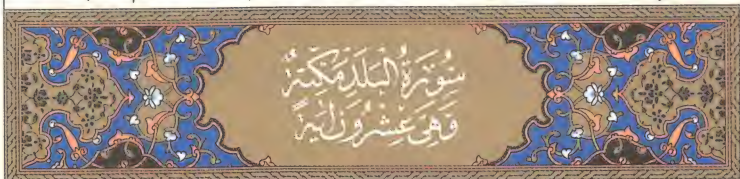 سُورَةُ الْبَلَدِ مَكِّيَّةٌ
وَهِيَ عِشْرُونَ آيَةً